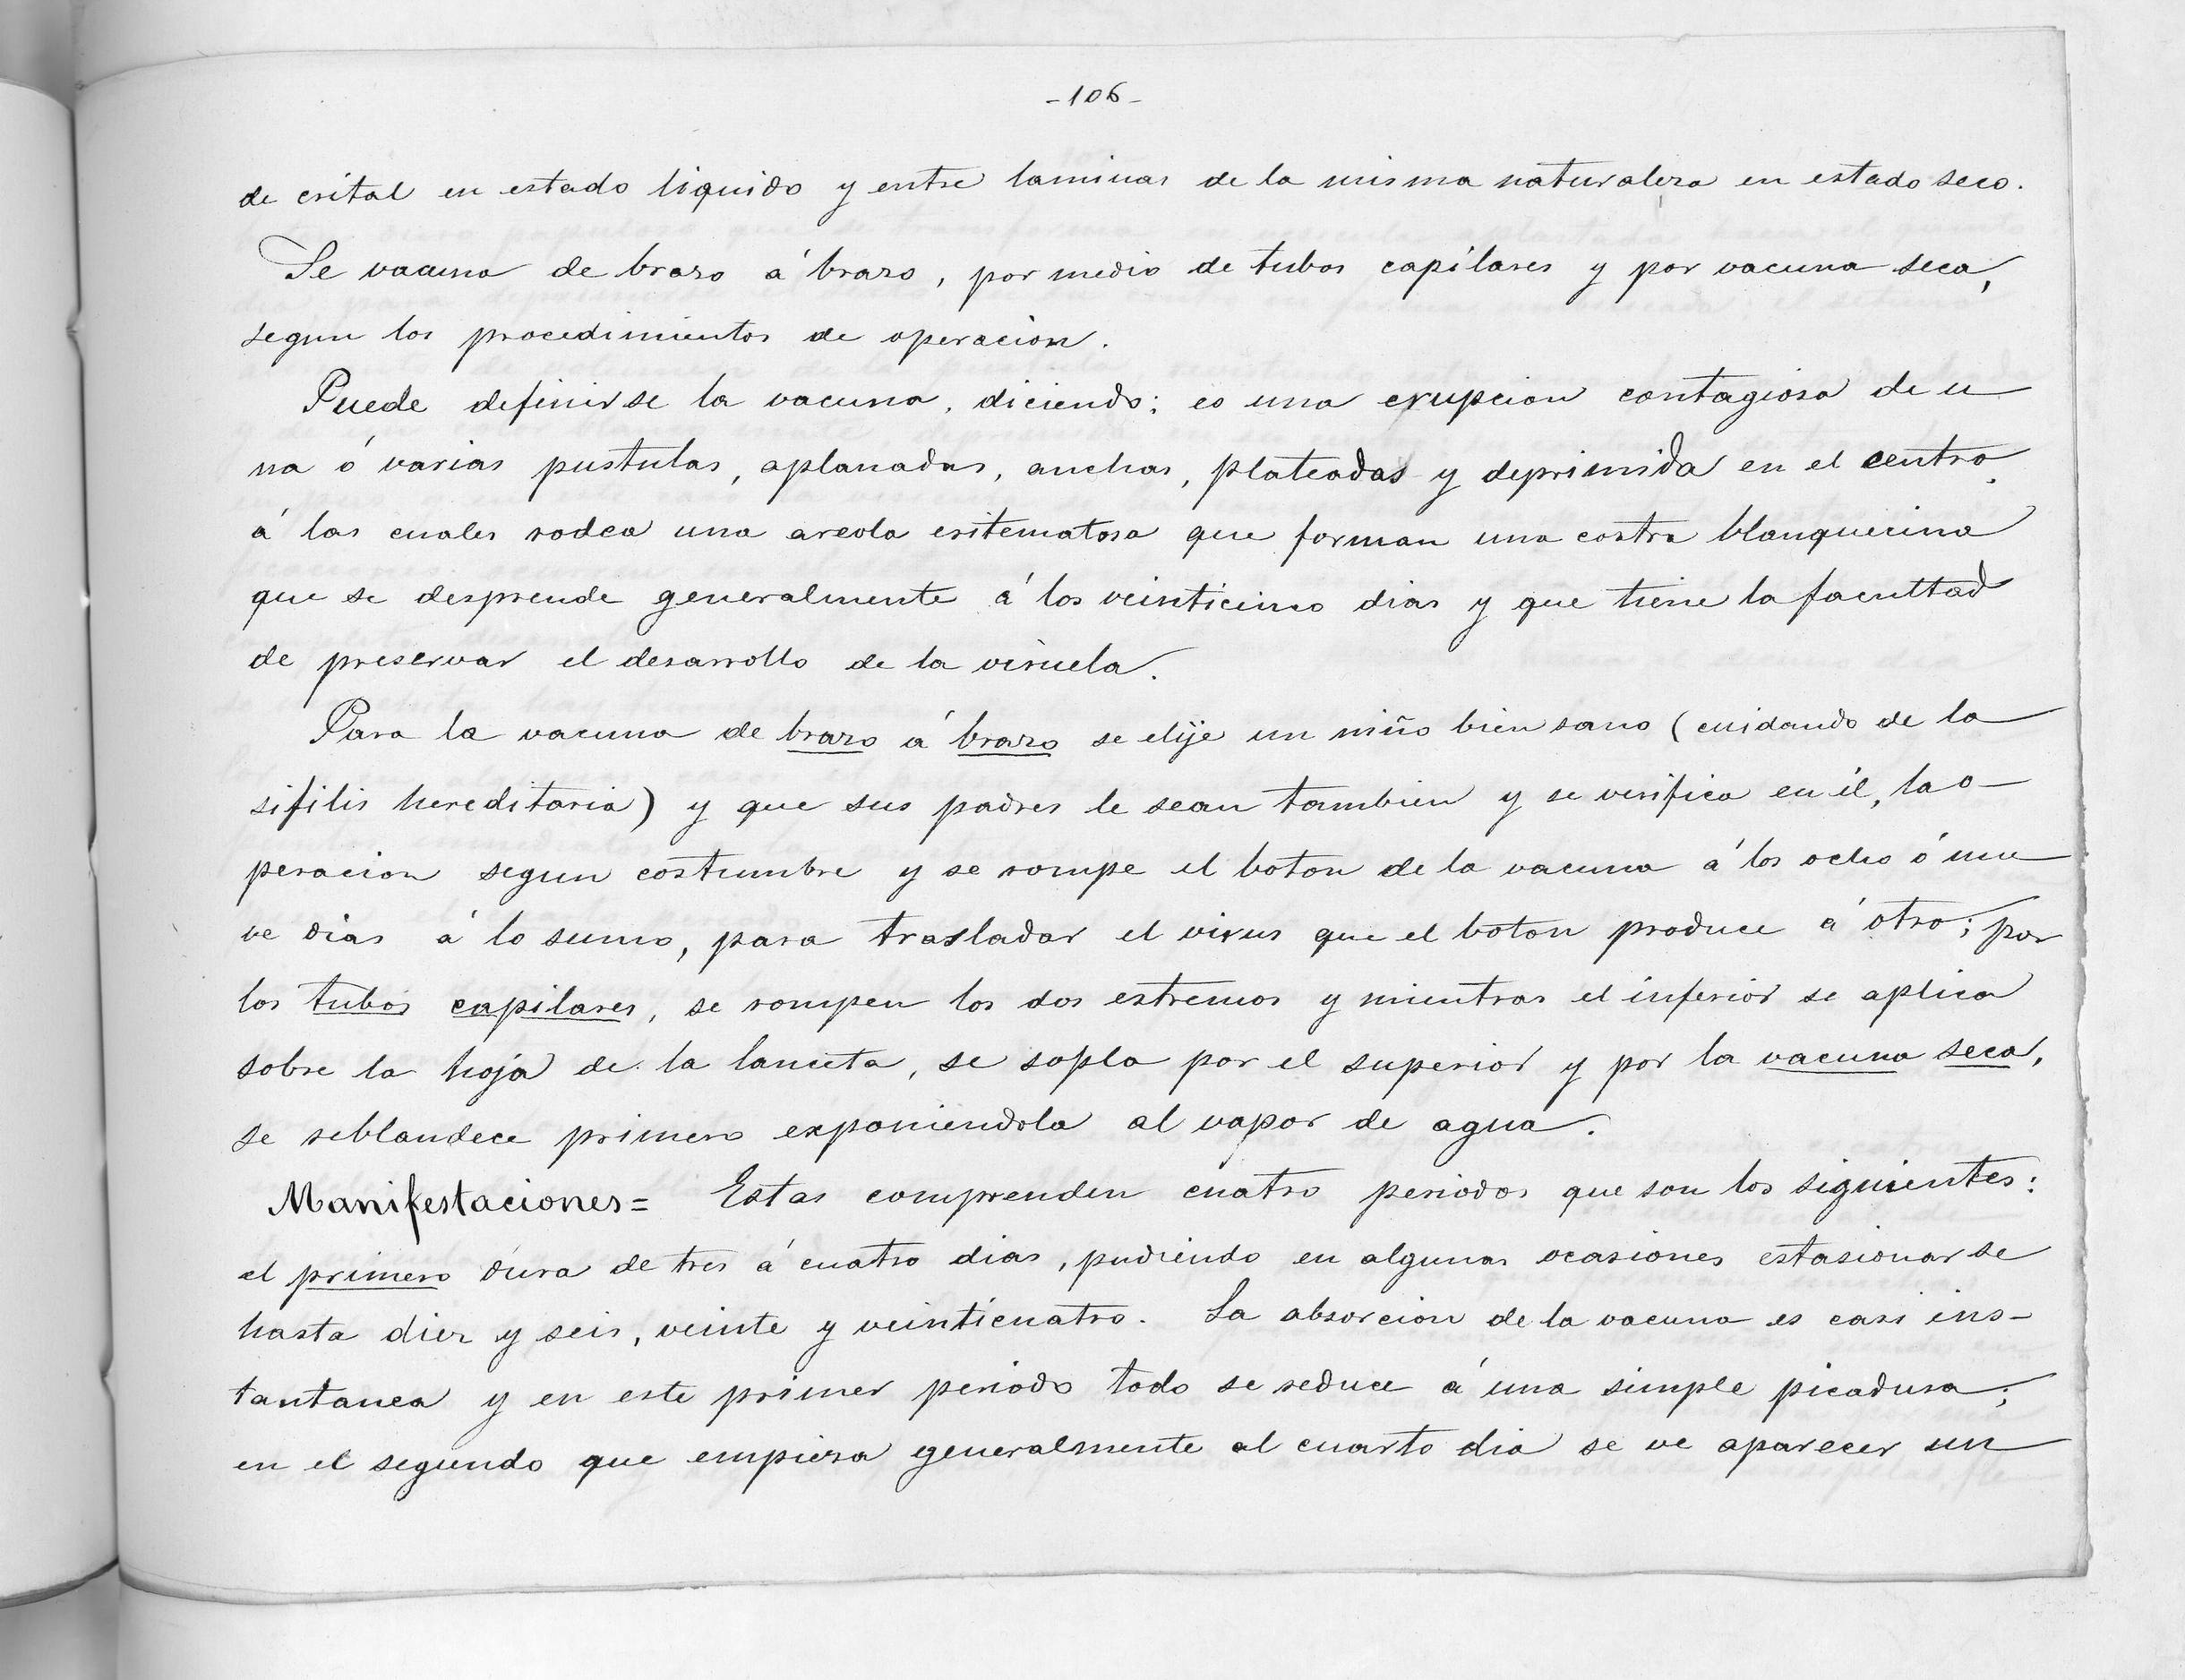 -106-
de crital en estado liquido y entre laminas de la misma naturaleza en estado seco.
Se vacuna de brazo á brazo, por medio de tubos capilares y por vacuna seca,
segun los procedimientos de operacion.
Puede definirse la vacuna, diciendo: es una erupcion contagiosa de u
na ó varias pustulas, aplanadas, anchas, plateadas y deprimida en el centro,
á las cuales rodea una areola eritematosa que forman una costra blanquecina
que se desprende generalmente á los veinticinco dias y que tiene la facultad
de preservar el desarrollo de la viruela.
Para la vacuna de brazo á brazo se elije un niño bien sano (cuidando de la
sifilis hereditaria) y que sus padres le sean tambien y se verifica en él, la o-
peracion segun costumbre y se rompe el boton de la vacuna á los ocho ó nue
ve dias á lo sumo, para trasladar el virus que el boton produce á otro; por
los tubos capilares, se rompen los dos estremos y mientras el inferior se aplica
sobre la hoja de la lanceta, se sopla por el superior y por la vacuna seca,
se reblandece primero exponiendola al vapor de agua.
Manifestaciones= Estas comprenden cuatro periodos que son los siguientes:
el primero dura de tres á cuatro dias, pudiendo en algunas ocasiones estasionarse
hasta diez y seis, veinte y veinticuatro. La absorcion de la vacuna es casi ins-
tantanea y en este primer periodo todo se reduce á una simple picadura;
en el segundo que empieza generalmente al cuarto dia se ve aparecer un